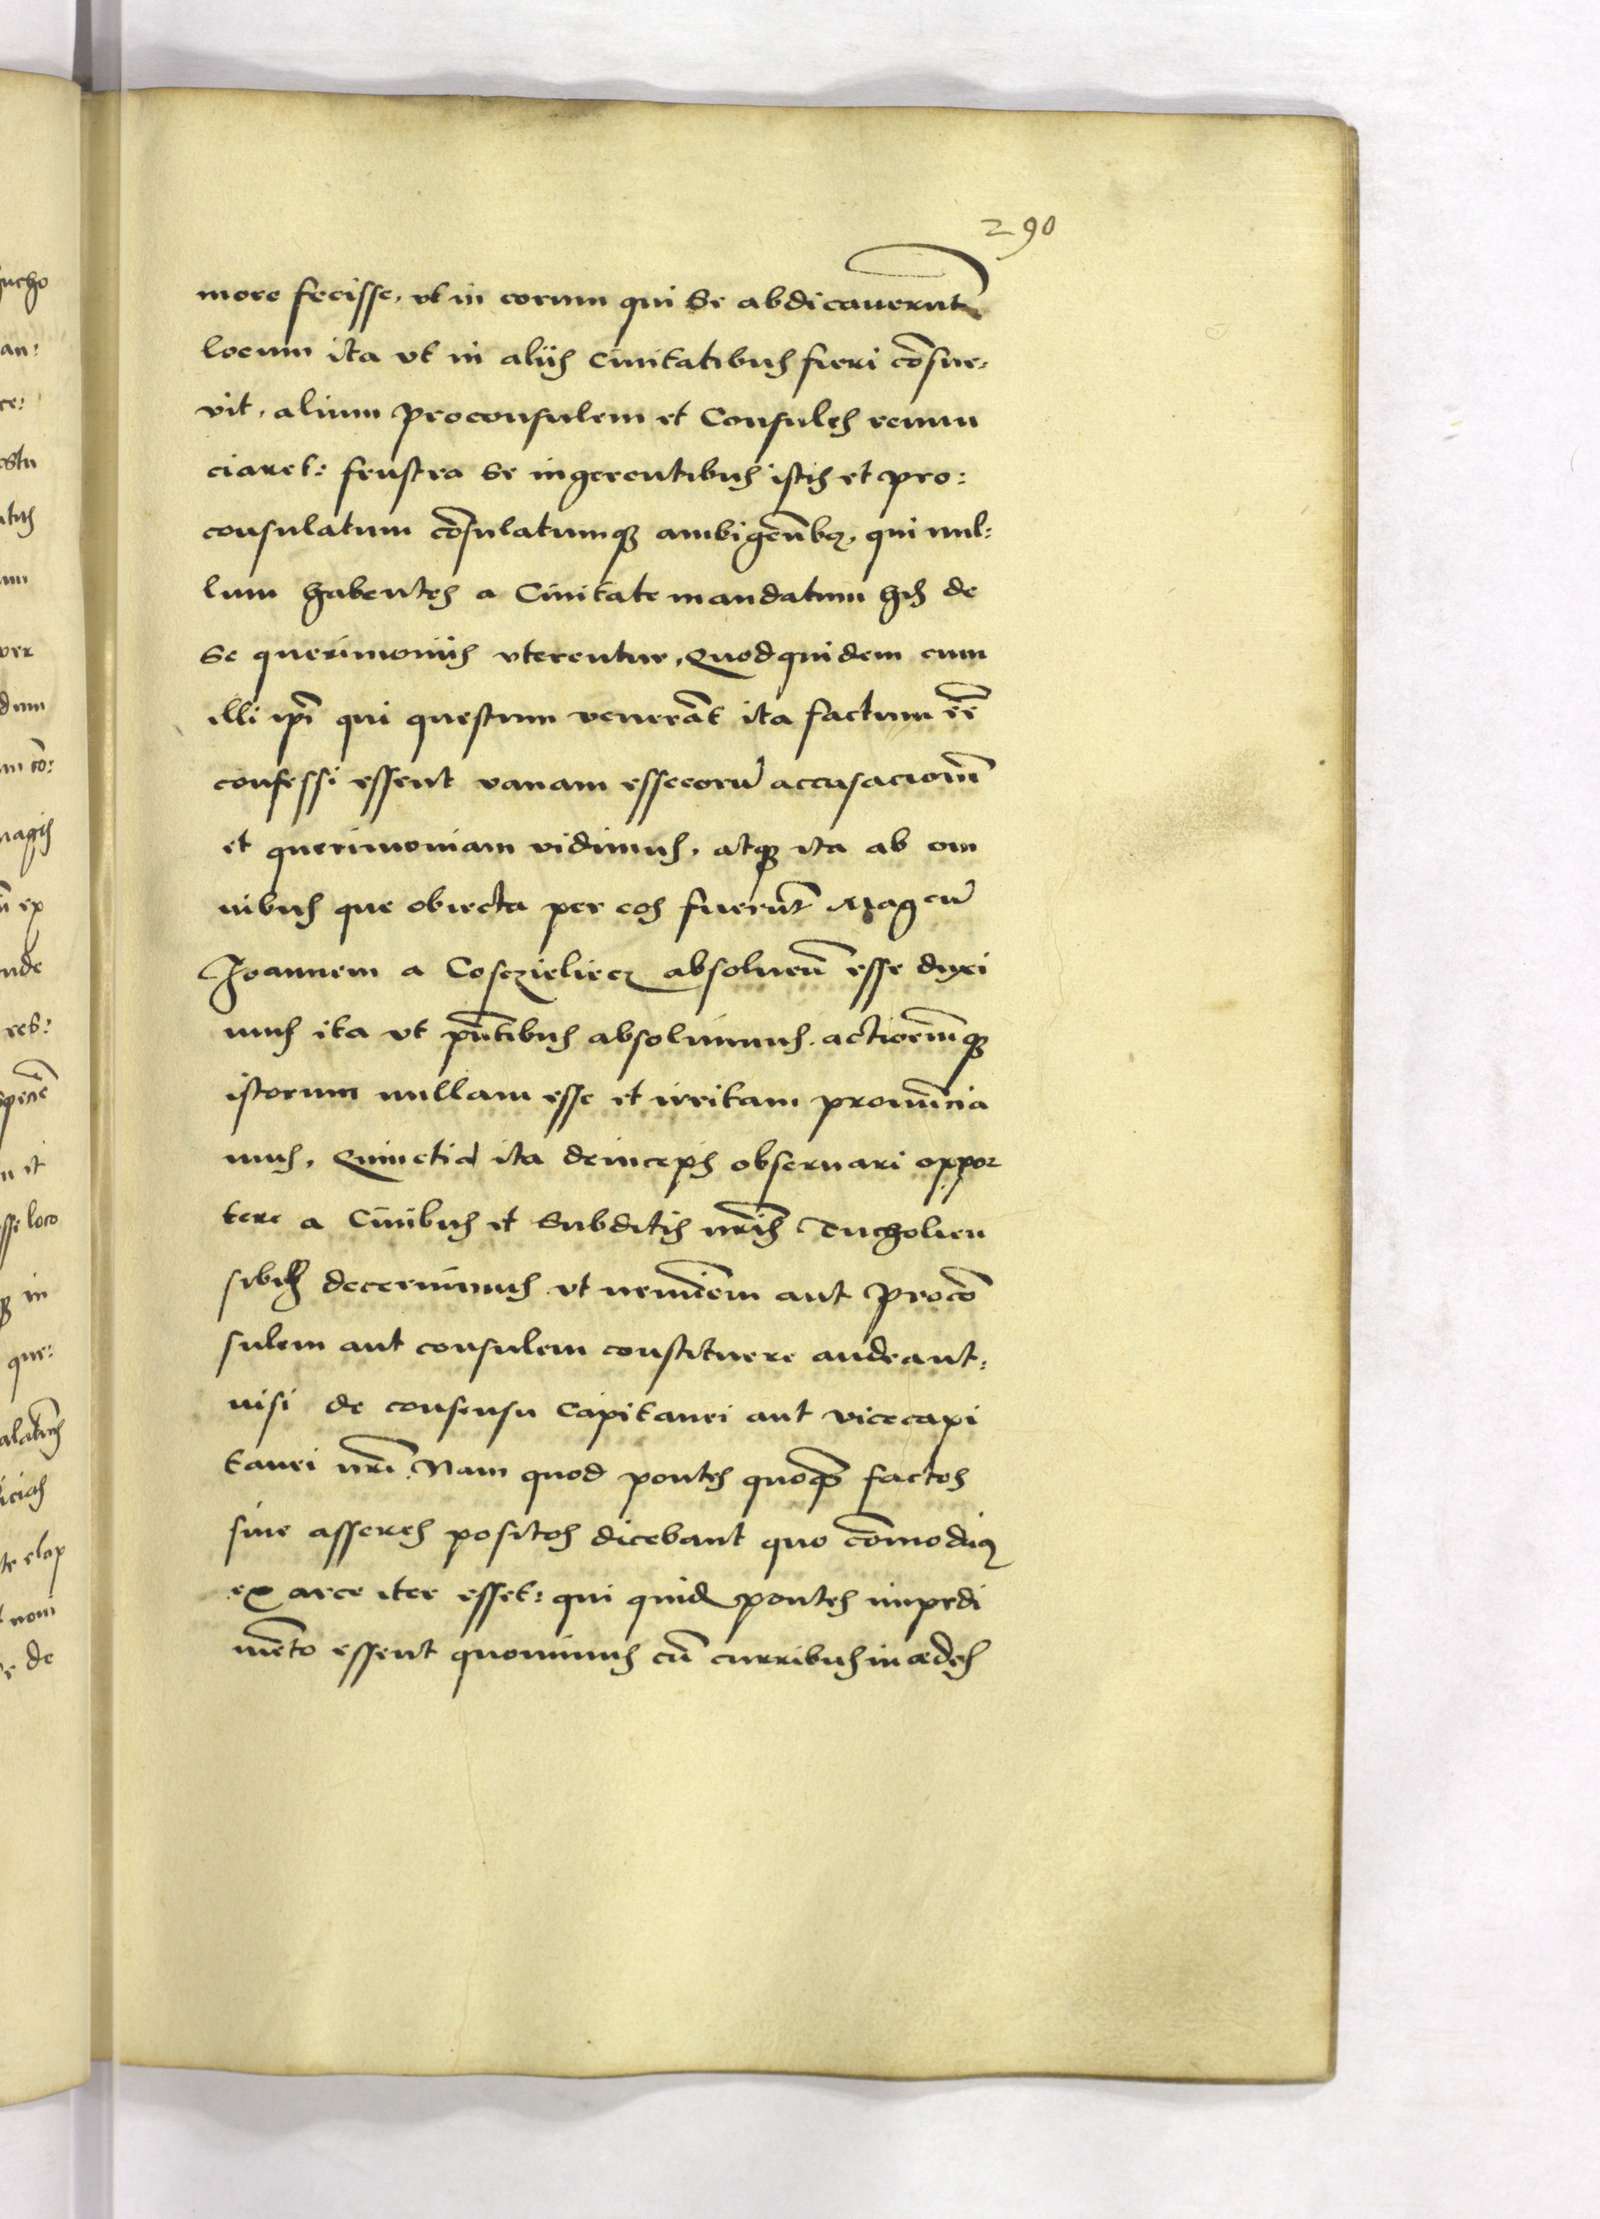 290
more fecisse, vt in eorum qui se abdicauerunt
locum ita vt in aliis Ciuitatibus fieri cõsue⸗
vit, alium proconsulem et Consules renun
ciaret: frustra se ingerentibus istis et pro:
consulatum cõsulatumqꝫ ambigeñbꝰ, qui nul⸗
lum habentes a Ciuitate mandatum his de
se querimoniis vterentur, Quod quidem cum
illi ip̃i qui questum venerãt ita factum eẽ
confessi essent vanam esse eorũ accusacionẽ
et querimoniam vidimus, atqꝫ ita ab om
nibus que obiecta per eos fuerũt Mag cũ
Joannem a Cosczieliecz absolueñ esse duxi
mus ita vt pñtibus absoluimus. actionẽmqꝫ
istorum nullam esse et irritam pronũncia
mus, Quinetiã ita deinceps obseruari oppor
tere a Ciuibus et Subditis nr̃is Tucholien
sibus decernimus vt neminẽm aut Procõ
sulem aut consulem constituere audeant⸗
nisi de consensu Capitanei aut vicecapi
tanei nr̃i. Nam quod pontes quoqꝫ factos
siue asseres positos dicebant quo cõmodiꝰ
ex arce iter esset: qui quidẽ pontes impedi
mẽto essent quominus cũ curribus in ędes
ucho
an:
ce:
um
ver
dum
m cõ:
magis
ex
nde
ret:
n it
ssi loco
in
que:
te elap
nom
de